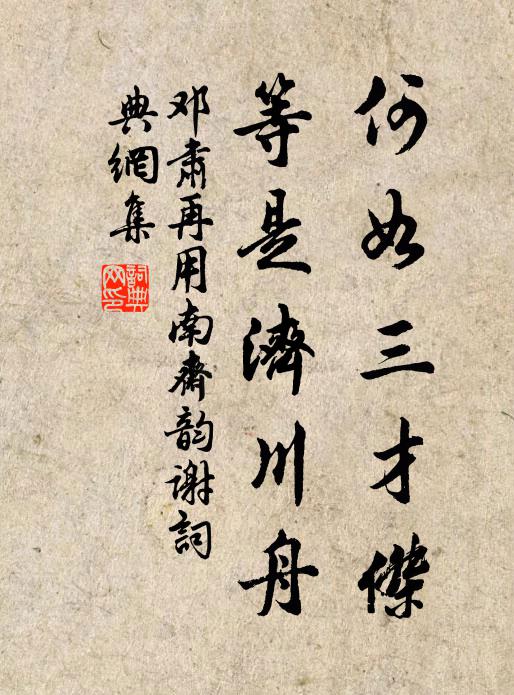 何如三才傑
等是濟川舟
邓肅再用南齋韵谢詞
典網集
詞典网印